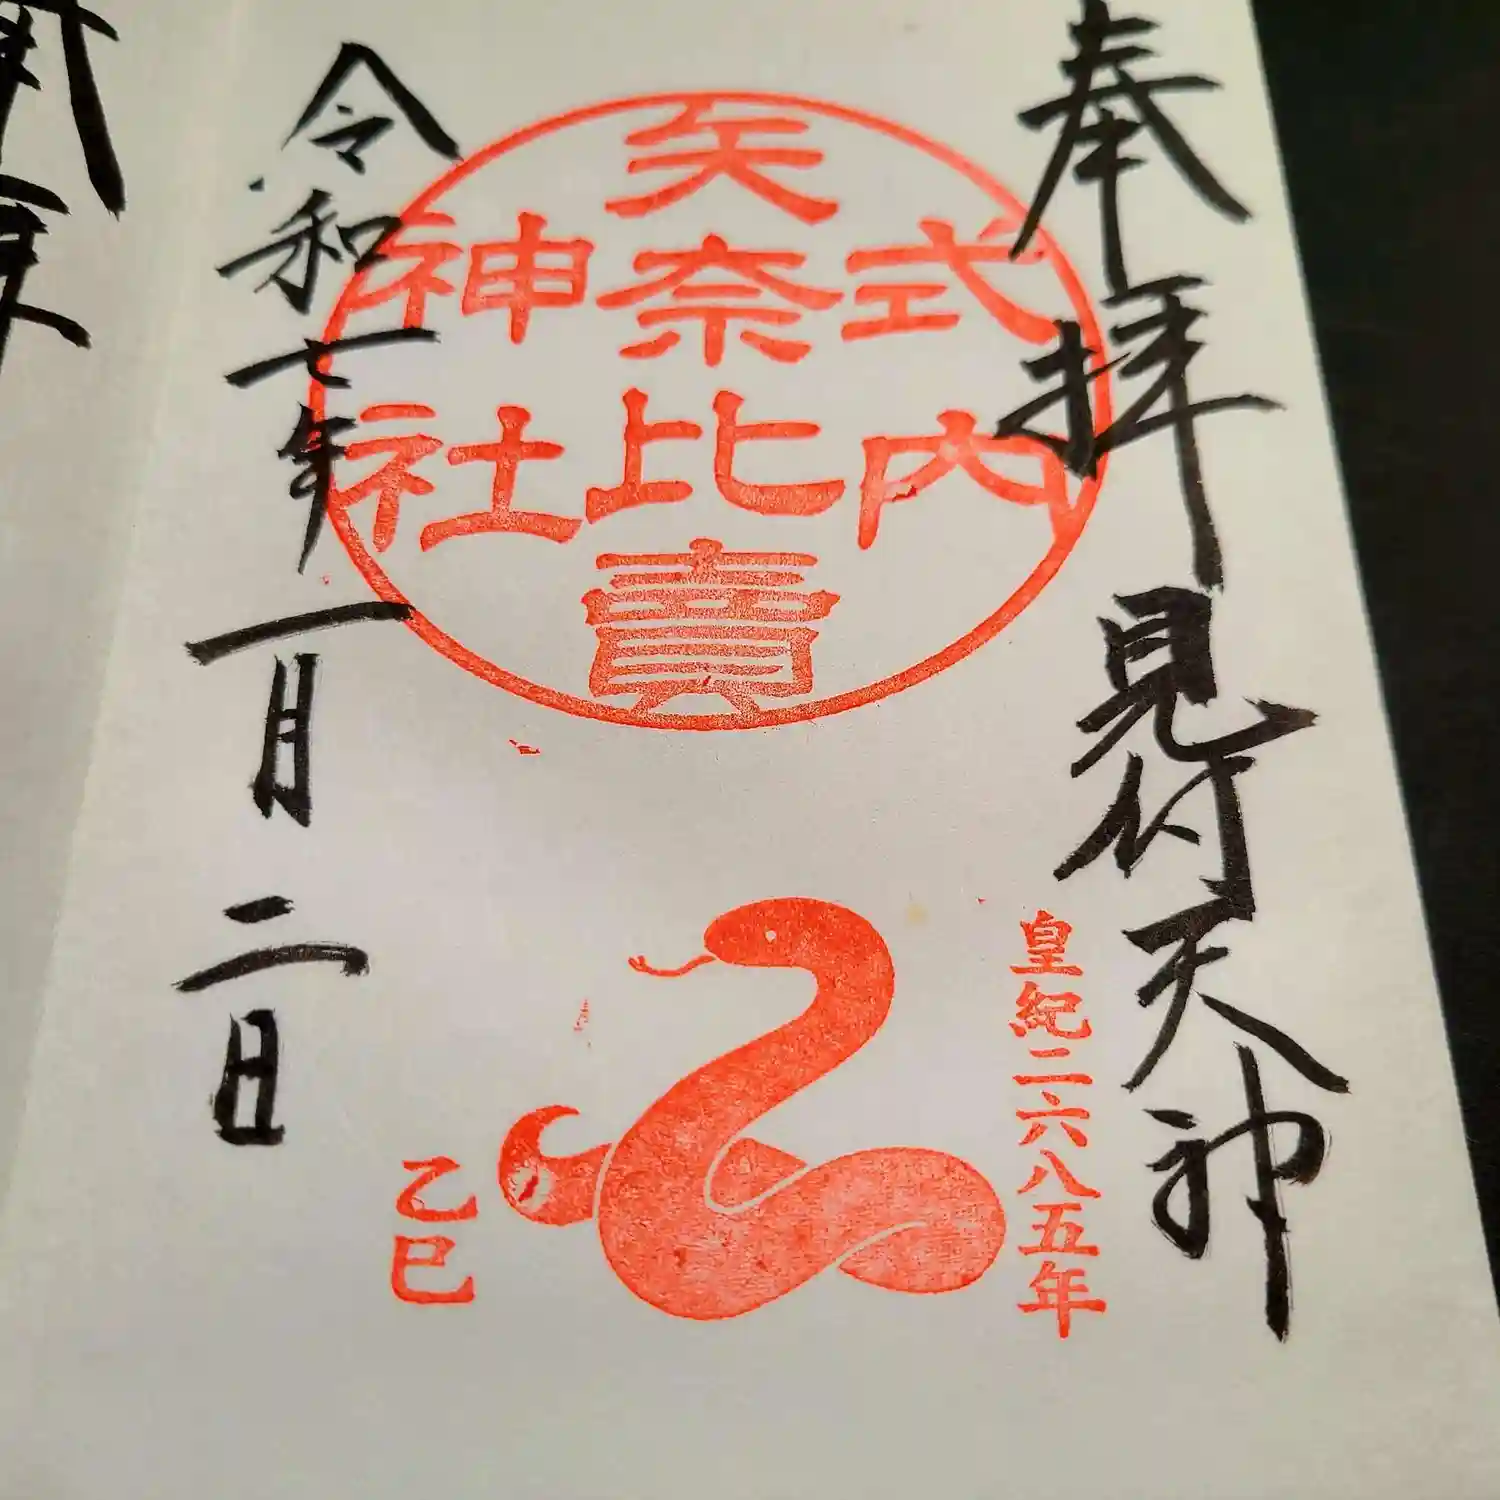 奉拝 見付天神
皇紀二六八五年
式内
矢奈比賣
神社
乙巳
令和七年 一月 二日